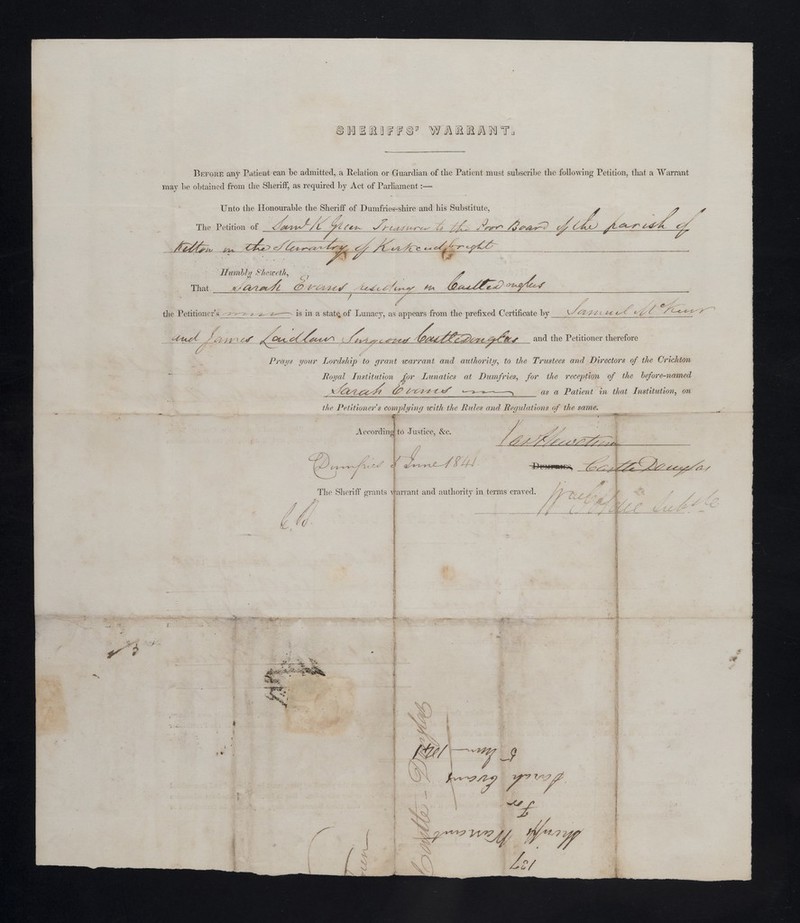 SHERIFFS' WARRANT.
BEFORE any Patient can be admitted, a Relation or Guardian of the Patient must subscribe the following Petition, that a Warrant
may be obtained from the Sheriff, as required by Act of Parliament:—
Unto the Honourable the Sheriff of Dumfries-shire and his Substitute,
The Petition of Saml K Green Treasurer to the Poor Board of the parish of
Kelton in the Stewartry of Kirkcudbright
Humbly Sheweth,
That Sarah Evans residing in Castledouglas
the Petitioner's is in a state of Lunacy, as appears from the prefixed Certificate by Samuel McKeur
and James Laidlaw Surgeons Castledouglas and the Petitioner therefore
Prays your Lordship to grant warrant and authority, to the Trustees and Directors of the Crichton
Royal Institution for Lunatics at Dumfries, for the reception of the before-named
Sarah Evans as a Patient in that Institution, on
the Petitioner's complying with the Rules and Regulations of the same.
According to Justice, &c.
Dumfries 5 June 1841 Castle Douglas
The Sheriff grants warrant and authority in terms craved.
137
Sheriffs Warrant
For
Sarah Evans
5 June 1841
Castle-Douglas